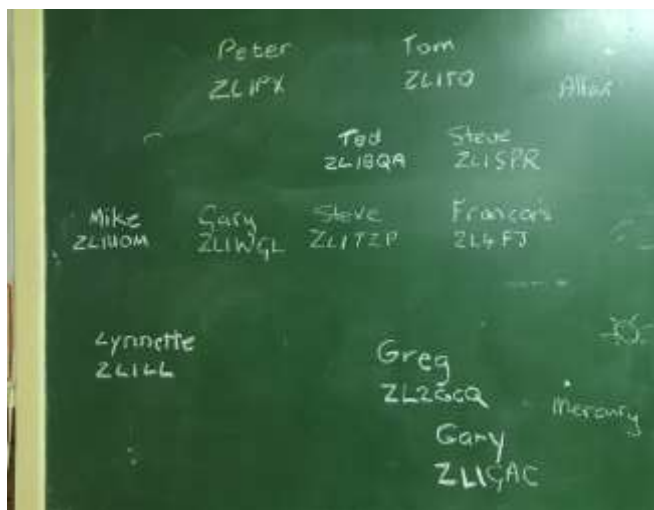 Peter
ZL1PX
Tom
ZL1TO
Allan
Ted
ZL1BQA
Steve
ZL1SPR
Mike
ZL1UOM
Gary
ZL1WGL
Steve
ZL1TZP
Francois
ZL4FJ
Lynnette
ZL1LL
Greg
ZL2GCQ
Mercury
Gary
ZL1GAC